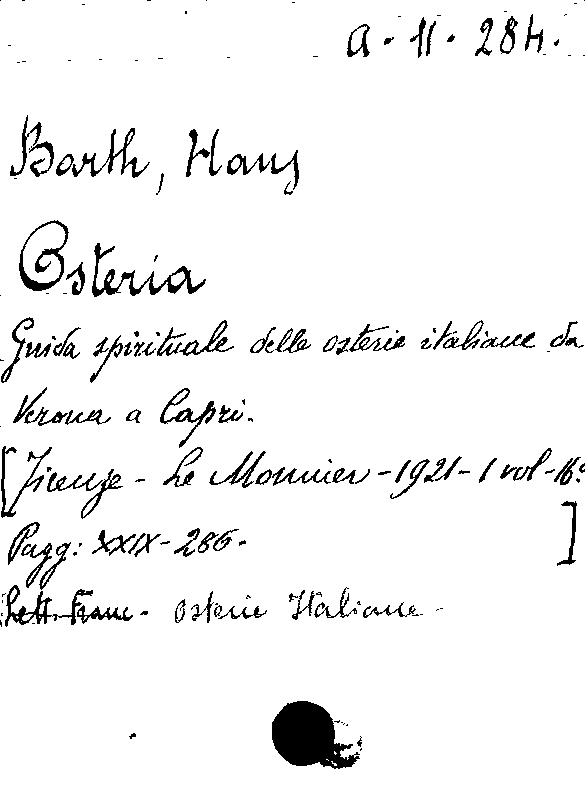 A. 11. 284.
Barth, Hans
Osteria
Guida spirituale delle osterie italiane da
Verona a Capri.
[Firenze - Le Monnier - 1921 - 1 vol - 16°
Pagg: XXIX - 286. ]
Lett. Franc - Osterie Italiane -